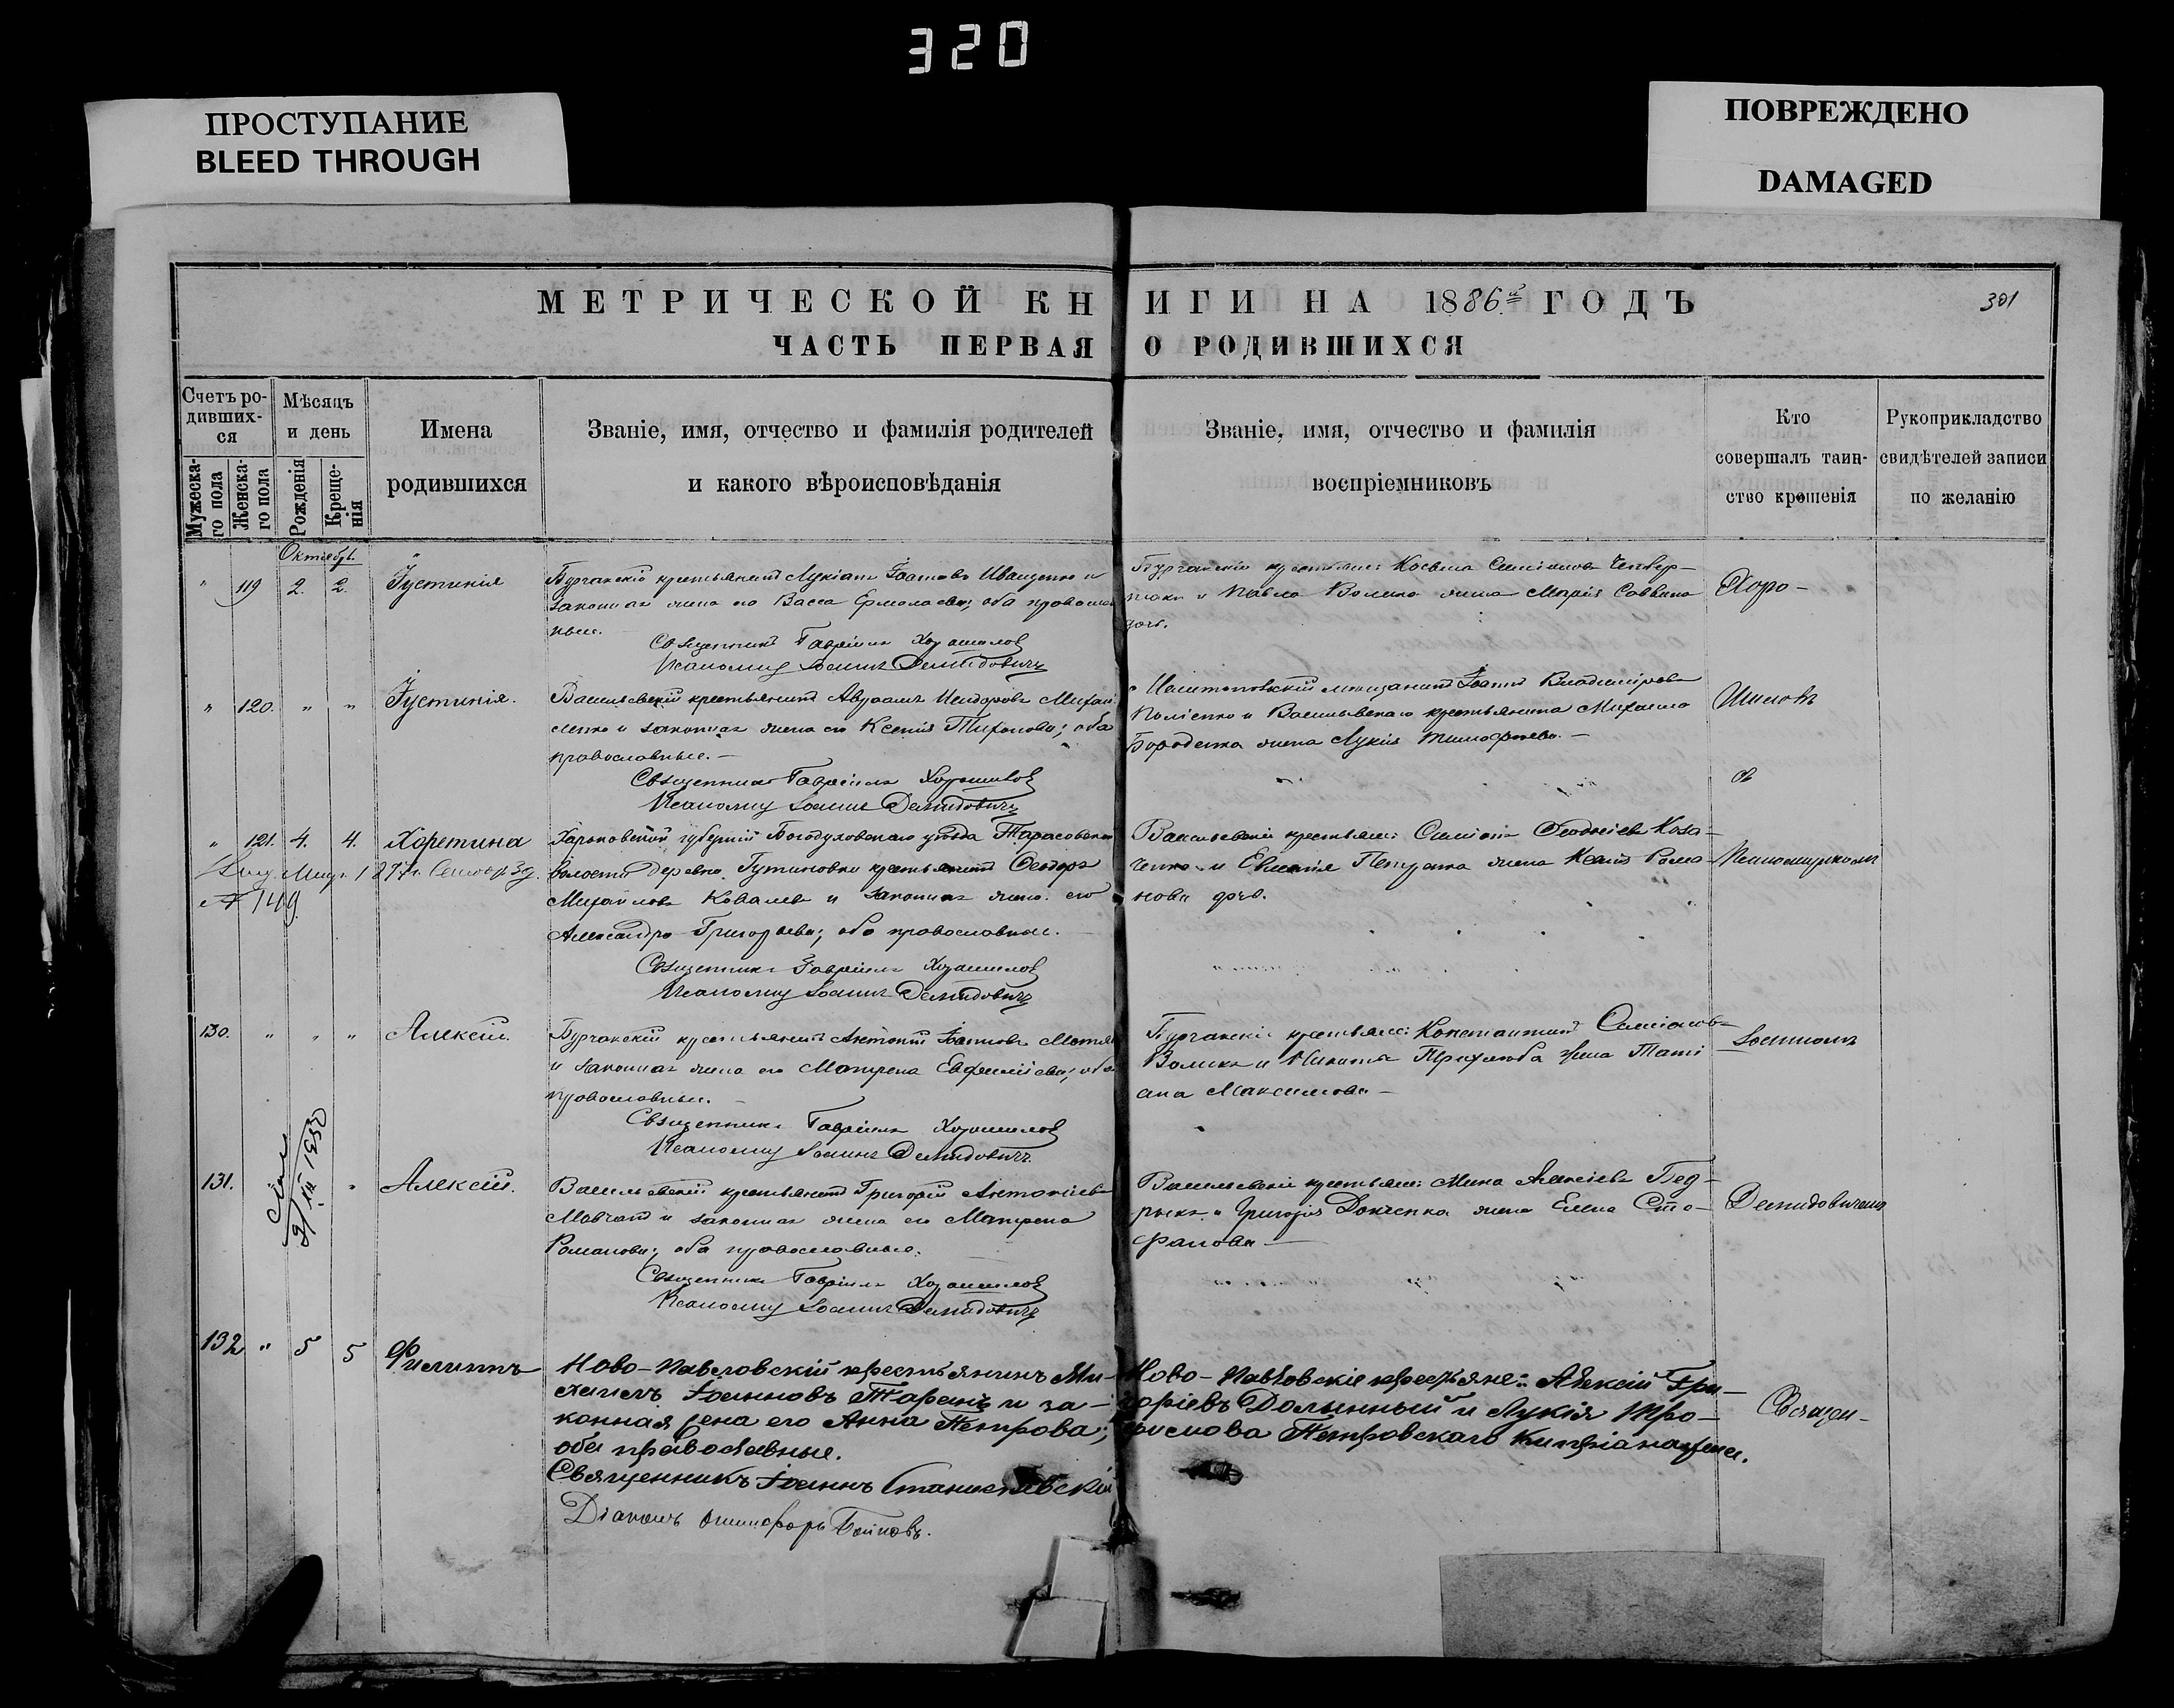 320
ПРОСТУПАНИЕ
BLEED THROUGH
ПОВРЕЖДЕНО
DAMAGED
МЕТРИЧЕСКОЙ КНИГИ НА 1886й ГОДЪ
301
ЧАСТЬ ПЕРВАЯ О РОДИВШИХСЯ
Счетъ ро-
дивших-
ся
Мужеска-
го пола
Женска-
го пола
Мѣсяцъ
и день
Рожденія
Креще-
нія
Имена
родившихся
Званіе, имя, отчество и фамилія родителей
и какого вѣроисповѣданія
Званіе, имя, отчество и фамилія
воспріемниковъ
Кто
совершалъ таин-
ство крещенія
Рукоприкладство
свидѣтелей записи
по желанію
Октябрь.
" 119 2. 2. Іустинія
Бурчакскій крестьянинъ Лукіанъ Іоанновъ Иващенко и
законная жена его Васса Ермолаева; оба православ
ные.
Священникъ Гавріилъ Хорошилов
Псаломщ Іоаннъ Демидовичъ
Бурчакскіе крестьяне: Косьма Симіоновъ Четвер-
и Павла Волика жена Марія Саввина
дочь.
Хоро-
" 120. " " Іустинія.
Васильевскій крестьянинъ Авраамъ Исидоровъ Михай
ленко и законная жена его Ксенія Тихонова; оба
православные.-
Священникъ Гавріилъ Хорошилов
Псаломщ Іоаннъ Демидовичъ
мѣщанинъ Іоаннъ Владиміровъ
и Васильевскаго крестьянина Михаила
Бороденка жена Лукія Тимофѣева.-
Шиловъ
съ
" 121. 4. 4. Харитина
№ 149
Харьковской губерніи Богодуховскаго уѣзда Тарасовской
волости деревни Гутиновки крестьянинъ Ѳеодоръ
Михайловъ Ковалев и законная жена его
Александра Григорьева; оба православные.
Священникъ Гавріилъ Хорошилов
Псаломщ Іоаннъ Демидовичъ
Васильевскіе крестьяне: Симіонъ Коза-
ченко и жена Ксенія Рома-
нова дочь.
Псаломщикомъ
130. " " " Алексій.
Бурчакскій крестьянинъ Антоній Іоанновъ
и законная жена его Матрена Евфиміева; оба
православные.-
Священникъ Гавріилъ Хорошилов
Псаломщ Іоаннъ Демидовичъ
Бурчакскіе крестьяне: Константинъ Симіоновъ
Воликъ и Никиты жена Тати
ана Максимова-
Іоанномъ
131. " Алексій.
Васильевскій крестьянинъ Григорій Антоніевъ
Мовчанъ и законная жена его Матрена
Романова; оба православные.
Священникъ Гавріилъ Хорошилов
Псаломщ Іоаннъ Демидовичъ
Васильевскіе крестьяне: Мина Алексіевъ Бед-
рыкъ и Григорія жена Елена Сте-
фанова-
Демидовичемъ
132 " 5 5 Филиппъ
Ново-Павловскій крестьянинъ Ми-
хаилъ Іоанновъ Таранъ и за-
конная жена его Анна Петрова;
оба православные.
Священникъ Іоаннъ Станиславскій
Діаконъ Онисифоръ Бойковъ.
Ново-Павловскіе крестьяне: Алексій Гри-
горіевъ Долынный и Лукія Тро-
фимова Петровскаго Кипріана жена.
Священ-